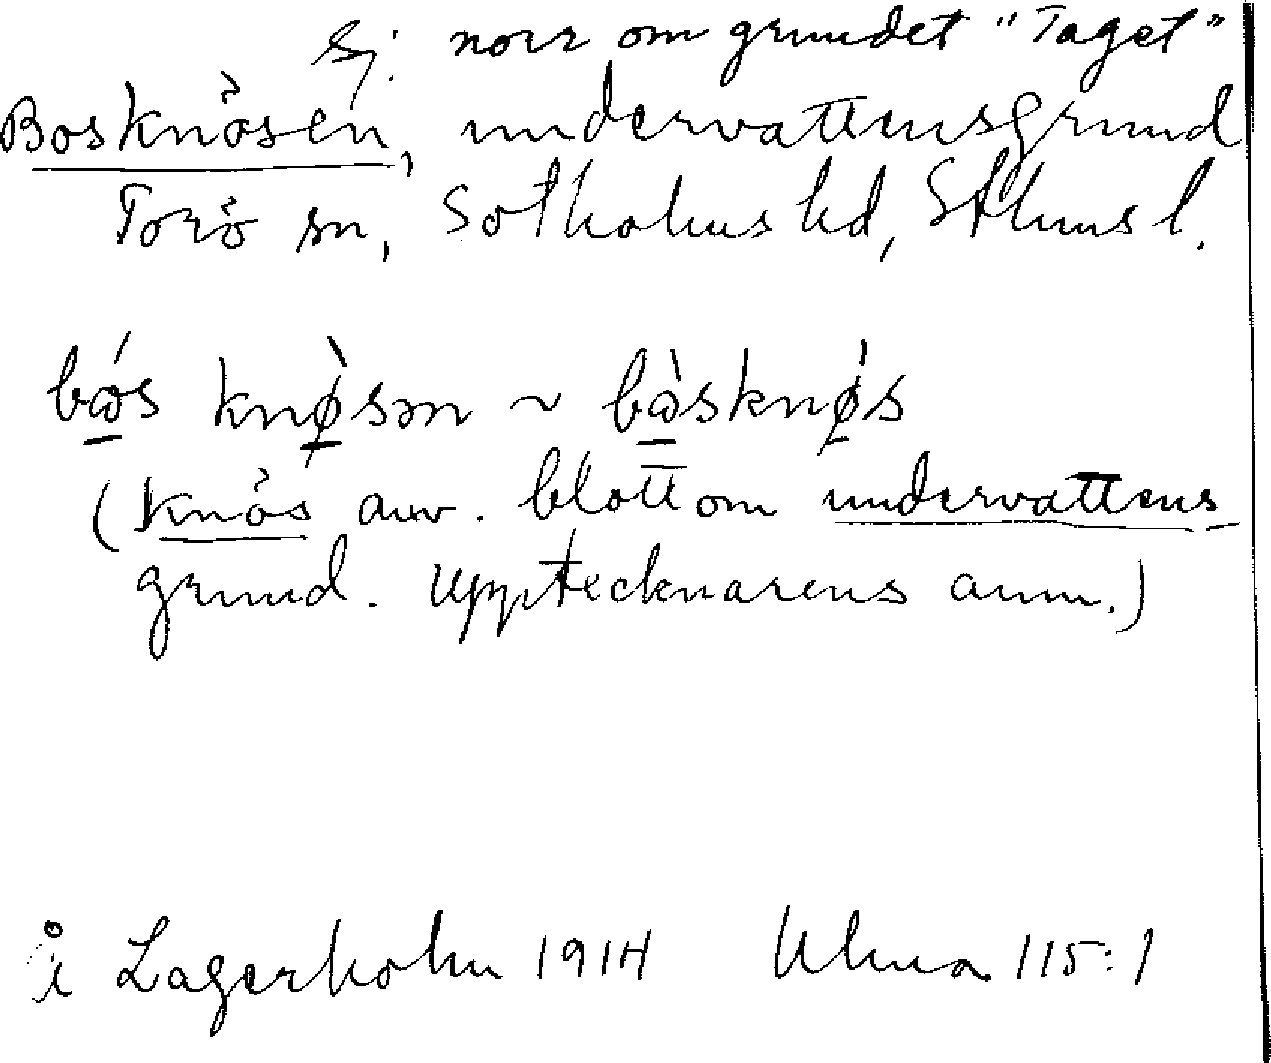 Ej: norr om grundet "Taget"
Bosknösen, undervattensgrund
Torö sn, Sotholms hd, Sthms l.
bɷ́s knø̀sən ~ bɷ̀sknǿs
(knös anv. blott om undervattens
grund. Upptecknarens anm.)
i Lagerholm 1914 Ulma 115:1